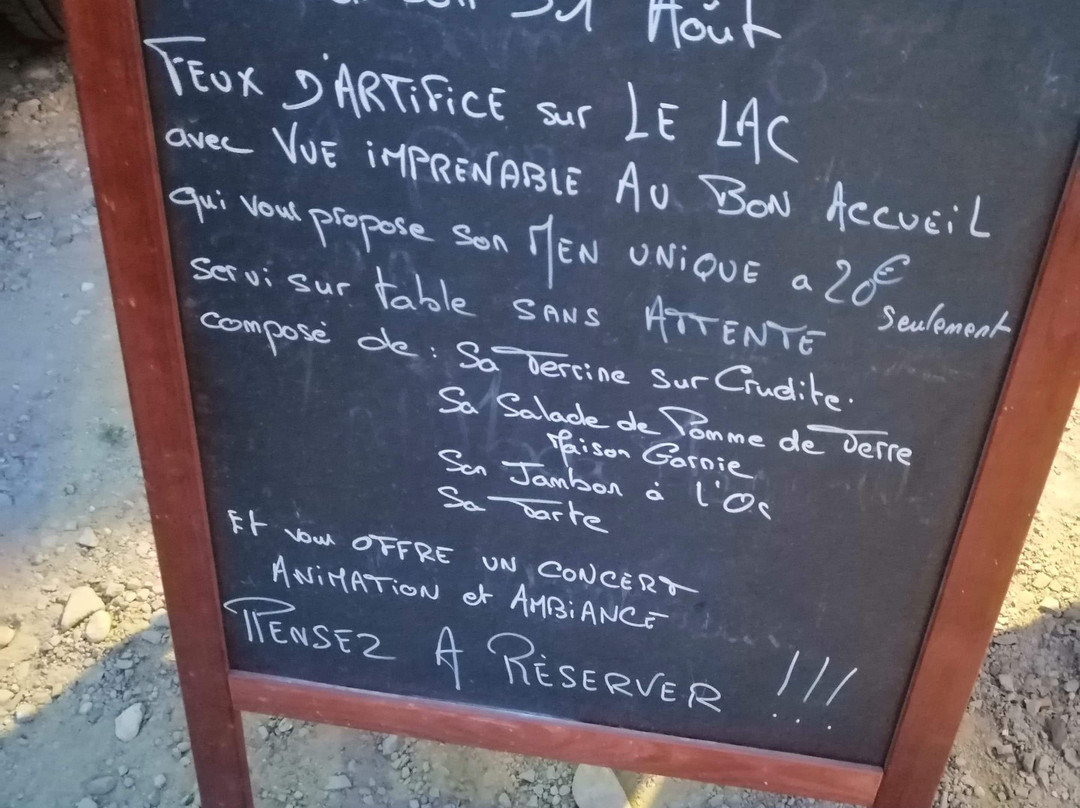 31 Août
FEUX D'ARTIFICE sur LE LAC
avec VUE IMPRENABLE AU BON ACCUEIL
qui vous propose son MEN UNIQUE a 20€
seulement
servi sur table SANS ATTENTE
composé de : Sa Terrine sur Crudite.
Sa Salade de Pomme de Terre
Maison Garnie
Son Jambon à l'Os
Sa Tarte
Et vous OFFRE UN CONCERT
ANIMATION et AMBIANCE
PENSEZ A RÉSERVER !!!